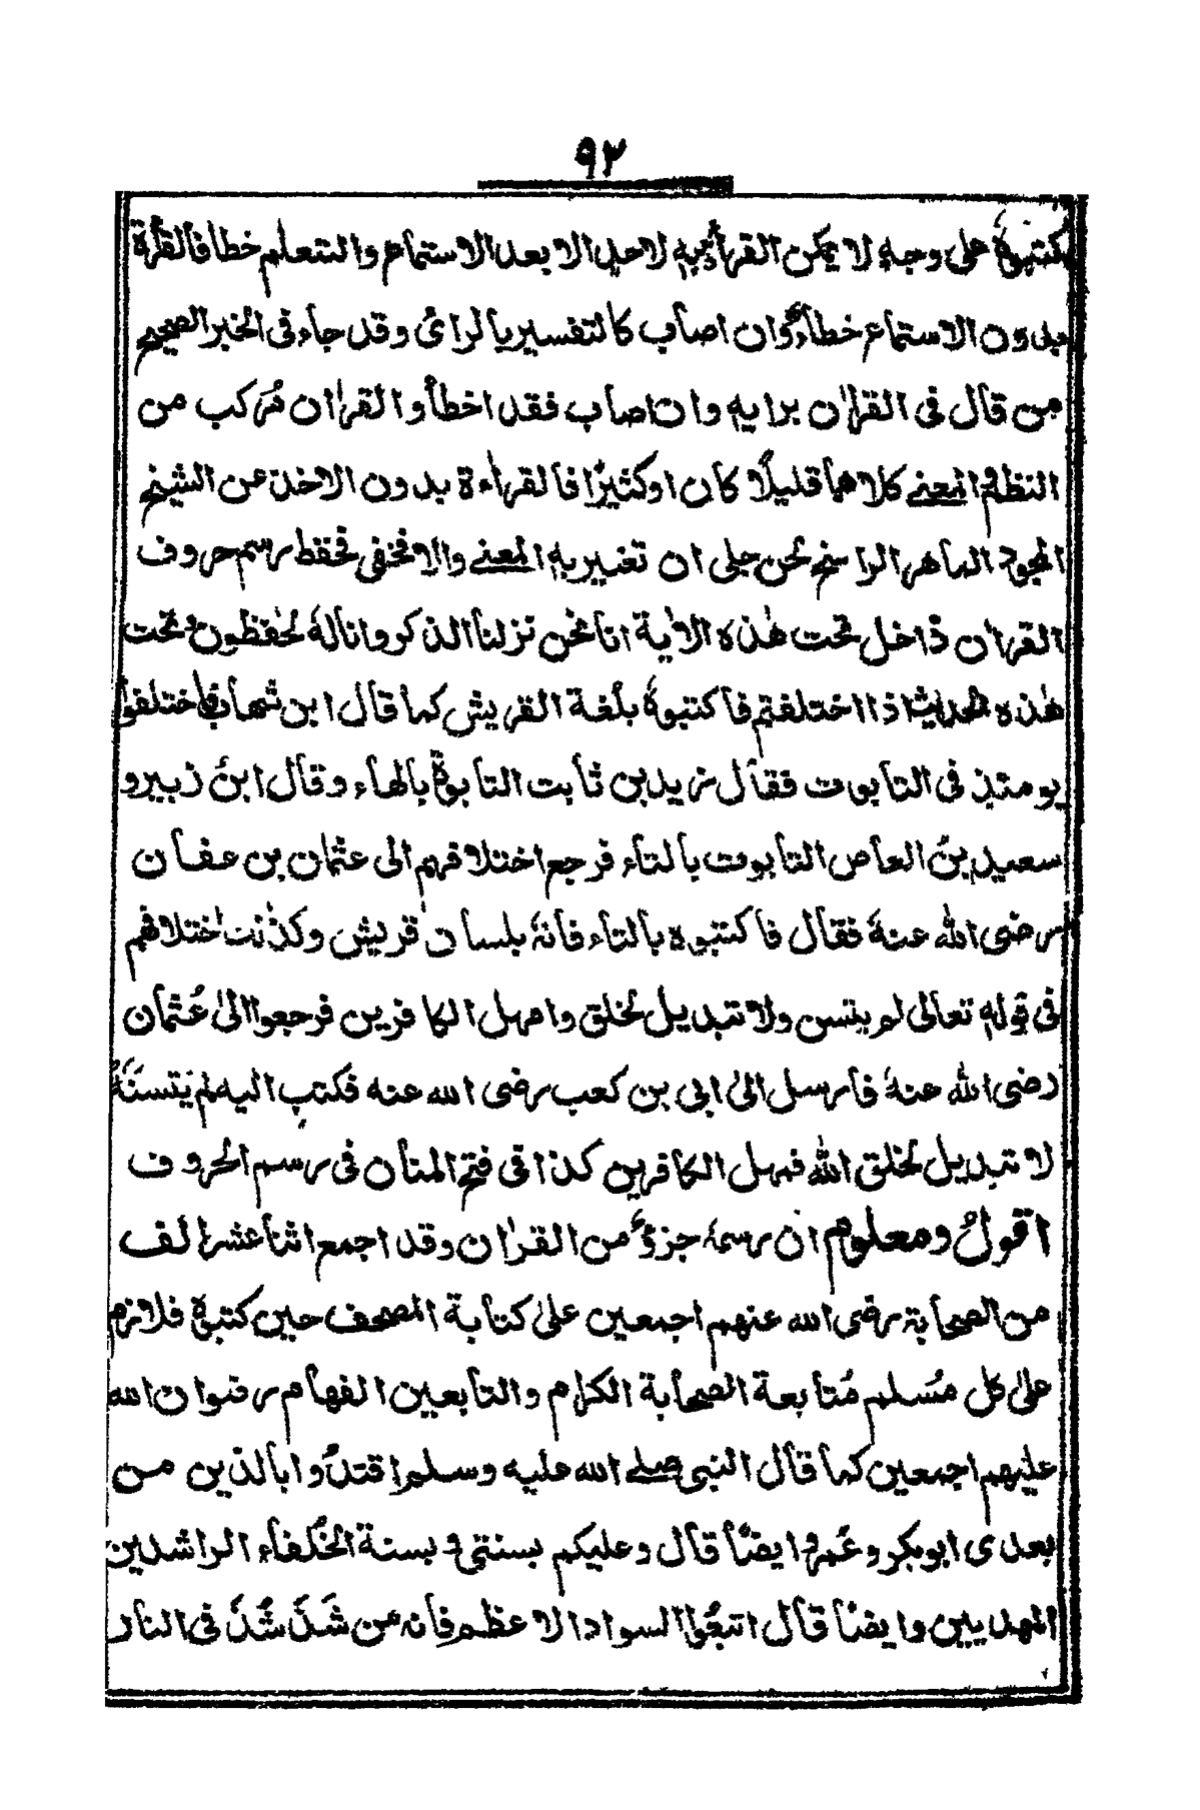 ٩٢
كتبوهٗ على وجهٍ لا يمكن القرأة به لاحدٍ الا بعد الاستماع والتعلم خطا فالقرأة
بدون الاستماع خطاءٌ وان اصاب كالتفسير بالرائ وقد جاء فى الخبر الصحيح
من قال فى القراٰن برايه وان اصاب فقد اخطأ والقراٰن مُركب من
النظم والمعنے كلاهما قليلًا كان اوكثيرًا فالقراءة بدون الاخذ عن الشيخ
المجود الماهر الراسخ لحن جلى ان تغير به المعنے والا فخفى فحفظ رسم حروف
القراٰن داخل تحت هٰذه الاٰية انا نحن نزلنا الذكر وانا لهٗ لحٰفظون وتحت
هٰذه الحديث اذا اختلفتم فاكتبوهٗ بلغة القريش كما قال ابن شهاب فاختلفوا
يومئذٍ فى التابوت فقال زيد بن ثابت التابوة بالهاء وقال ابن زبير و
سعيد بن العاص التابوت بالتاء فرجع اختلافهم الى عثمان بن عفان
رضى الله عنهٗ فقال فاكتبوه بالتاء فانهٗ بلسان قريش وكذٰلك اختلافهم
فى قولهٖ تعالىٰ لم يتسن ولا تبديل لخلق وامهل الكافرين فرجعوا الىٰ عُثمان
رضى الله عنهٗ فارسل الىٰ ابى بن كعب رضى الله عنه فكتب اليه لم يَتسنَّهْ
لا تبديل لخلق الله فمهل الكافرين كذا فى فتح المنان فى رسم الحروف
اقولُ ومعلوم ان رسمهٗ جزءٌ من القراٰن وقد اجمع اثنا عشر الف
من الصحابة رضى الله عنهم اجمعين علىٰ كتابة المصحف حين كتبوهٗ فلازم
علىٰ كل مُسلم مُتابعة الصحابة الكرام والتابعين الفهام رضوان الله
عليهم اجمعين كما قال النبى صلے الله عليه وسلم اقتدُوا بالذين من
بعدى ابوبكر وعُمر وايضًا قال وعليكم بسنتى وبسنة الخُلفاء الراشدين
المهديين وايضًا قال اتبعُوا السواد الاعظم فانه من شَذَّ شُذَّ فى النار